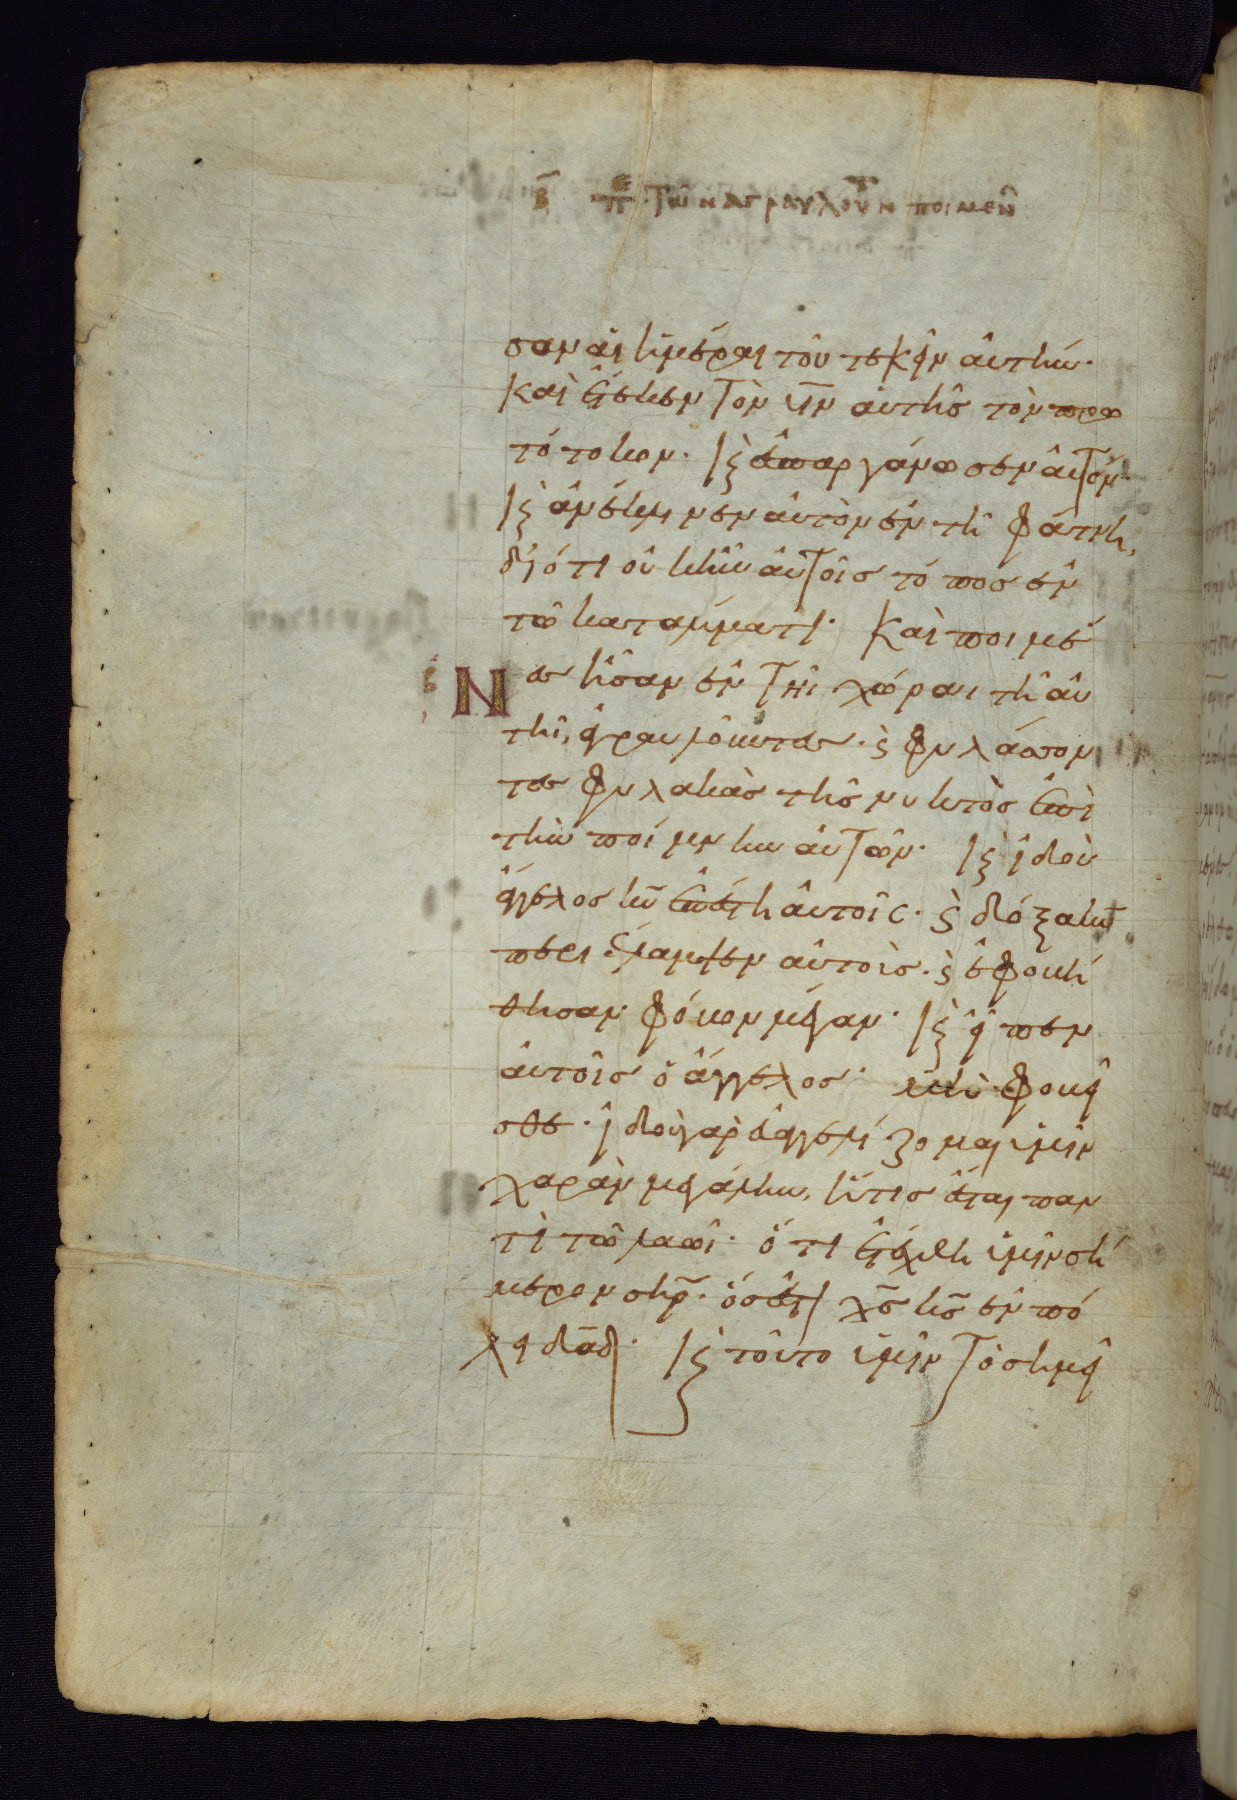 β πε τῶν ἀγραυλούντ ποιμένων
σαν αἱ ἡμέραι τοῦ τεκεῖν αὐτήν·
καὶ ἔτεκεν τὸν υν αὐτῆς τὸν πρω
τότοκον· κ̀ ἐσπαργάνωσεν αὐτόν·
κ̀ ἀνέκλινεν αὐτὸν ἐν τῆ φάτνη,
διότι οὐκ ἦν αὐτοῖς τόπος ἐν
τῶ καταλύματι· Καὶ ποιμέ
Νες ἦσαν ἐν τῆι χώραι τῆ αὐ
τῆ, ἀγραυλοῦντες· κ̀ φυλάσσον
τες φυλακὰς τῆς νυκτὸς ἐπὶ
τὴν ποίμνην αὐτῶν· κ̀ ἰδοὺ
ἄγγελος κυ ἐπέστη αὐτοῖς· κ̀ δόξα κυ
περιέλαμψεν αὐτοὺς· κ̀ ἐφοβή
θησαν φόβον μέγαν· κ̀ εἶπεν
αὐτοῖς ὁ ἄγγελος· μὴ φοβεῖ
σθε· ἰδοὺ γὰρ εὐαγγελίζομαι ὑμῖν
χαρὰν μεγάλην, ἥτις ἔσται παν
τὶ τῶ λαῶι· ὅτι ἐτέχθη ὑμῖν σή
μερον σηρ· ὅς ἐστι χς κς ἐν πό
λει δαδ· κ̀ τοῦτο ὑμῖν τὸ σημεῖ